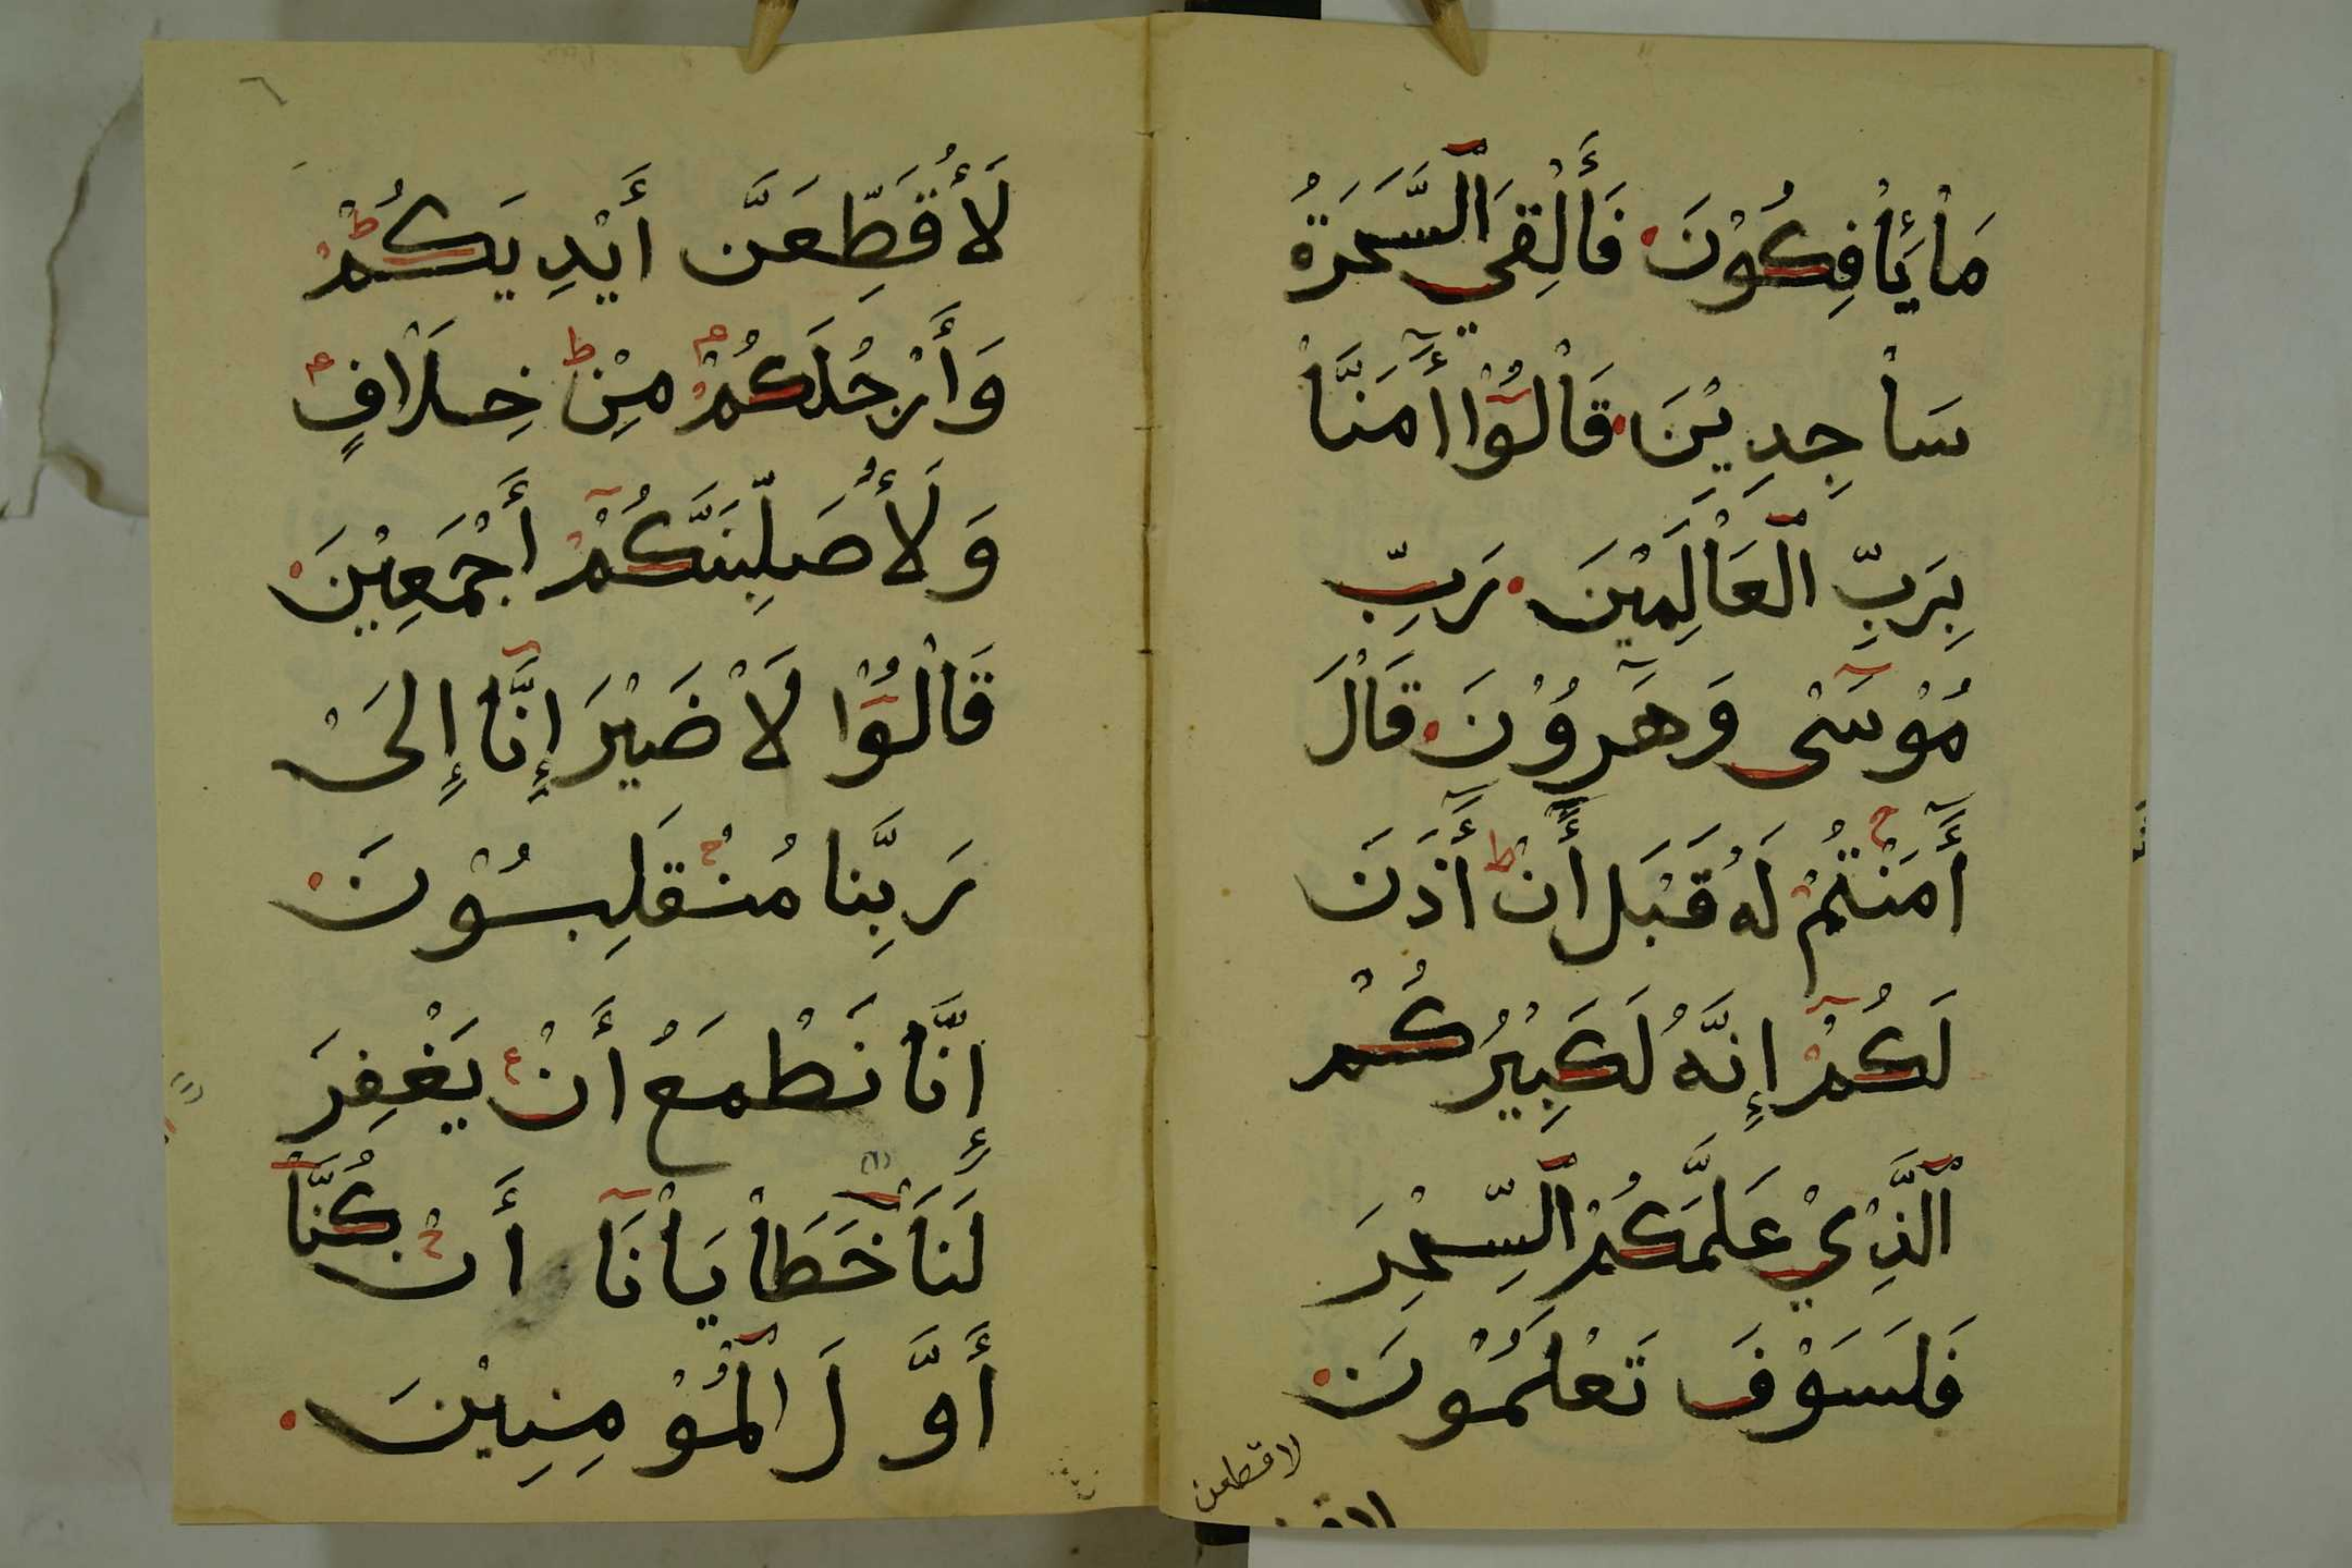 مَاْ يَأْفِكُوْنَ فَأَلْقِيَ ٱلسَّحَرَةُ
سَاْجِدِيْنَ قَاْلُوْا أٓمَنَّاْ
بِرَبِّ ٱلْعَاْلَمِيْنَ رَبِّ
مُوْسَىْ وَهَٰرُوْنَ قَاْلَ
أٓمَنْتُمْ لَهُ قَبْلَ أَنْ أٓذَنَ
لَكُمْ إِنَّهُ لَكَبِيْرُكُمْ
ٱلَّذِيْ عَلَّمَكُمُ ٱلسِّحْرَ
فَلَسَوْفَ تَعْلَمُوْنَ
لاقطعن
٦
لَأُقَطِّعَنَّ أَيْدِيَكُمْ
وَأَرْجُلَكُمْ مِنْ خِلَاْفٍ
وَلَأُصَلِّبَنَّكُمْ أَجْمَعِيْنَ
قَاْلُوْا لَاْ ضَيْرَ إِنَّاْ إِلَىْ
رَبِّنَا مُنْقَلِبُوْنَ
إِنَّاْ نَطْمَعُ أَنْ يَغْفِرَ
لَنَاْ خَطَاْيَاْنَاْ أَنْ كُنَّاْ
أَوَّلَ ٱلْمُؤْمِنِيْنَ